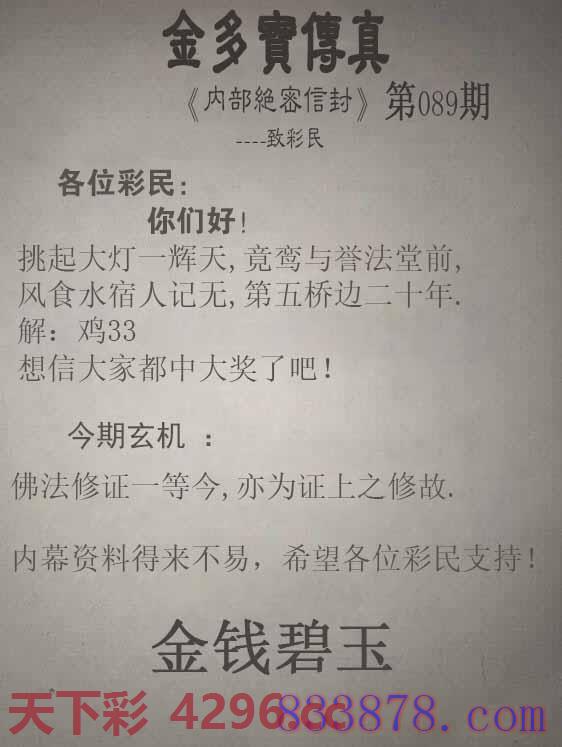 金多寶傳真
《内部絶密信封》第089期
----致彩民
各位彩民:
你们好!
挑起大灯一辉天,竟鸾与誉法堂前,
风食水宿人记无,第五桥边二十年.
解：鸡33
想信大家都中大奖了吧!
今期玄机 ：
佛法修证一等今,亦为证上之修故.
内幕资料得来不易，希望各位彩民支持!
金钱碧玉
天下彩 4296.cc
883878.com